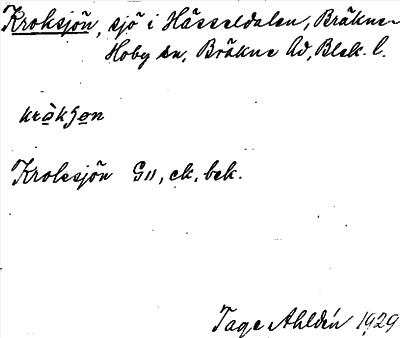 Kroksjön, sjö i Hässeldalen, Bräkne-
Hoby sn, Bräkne hd, Blek. l.
Kroksjön G11, ek. bek.
Tage Ahldén 1929